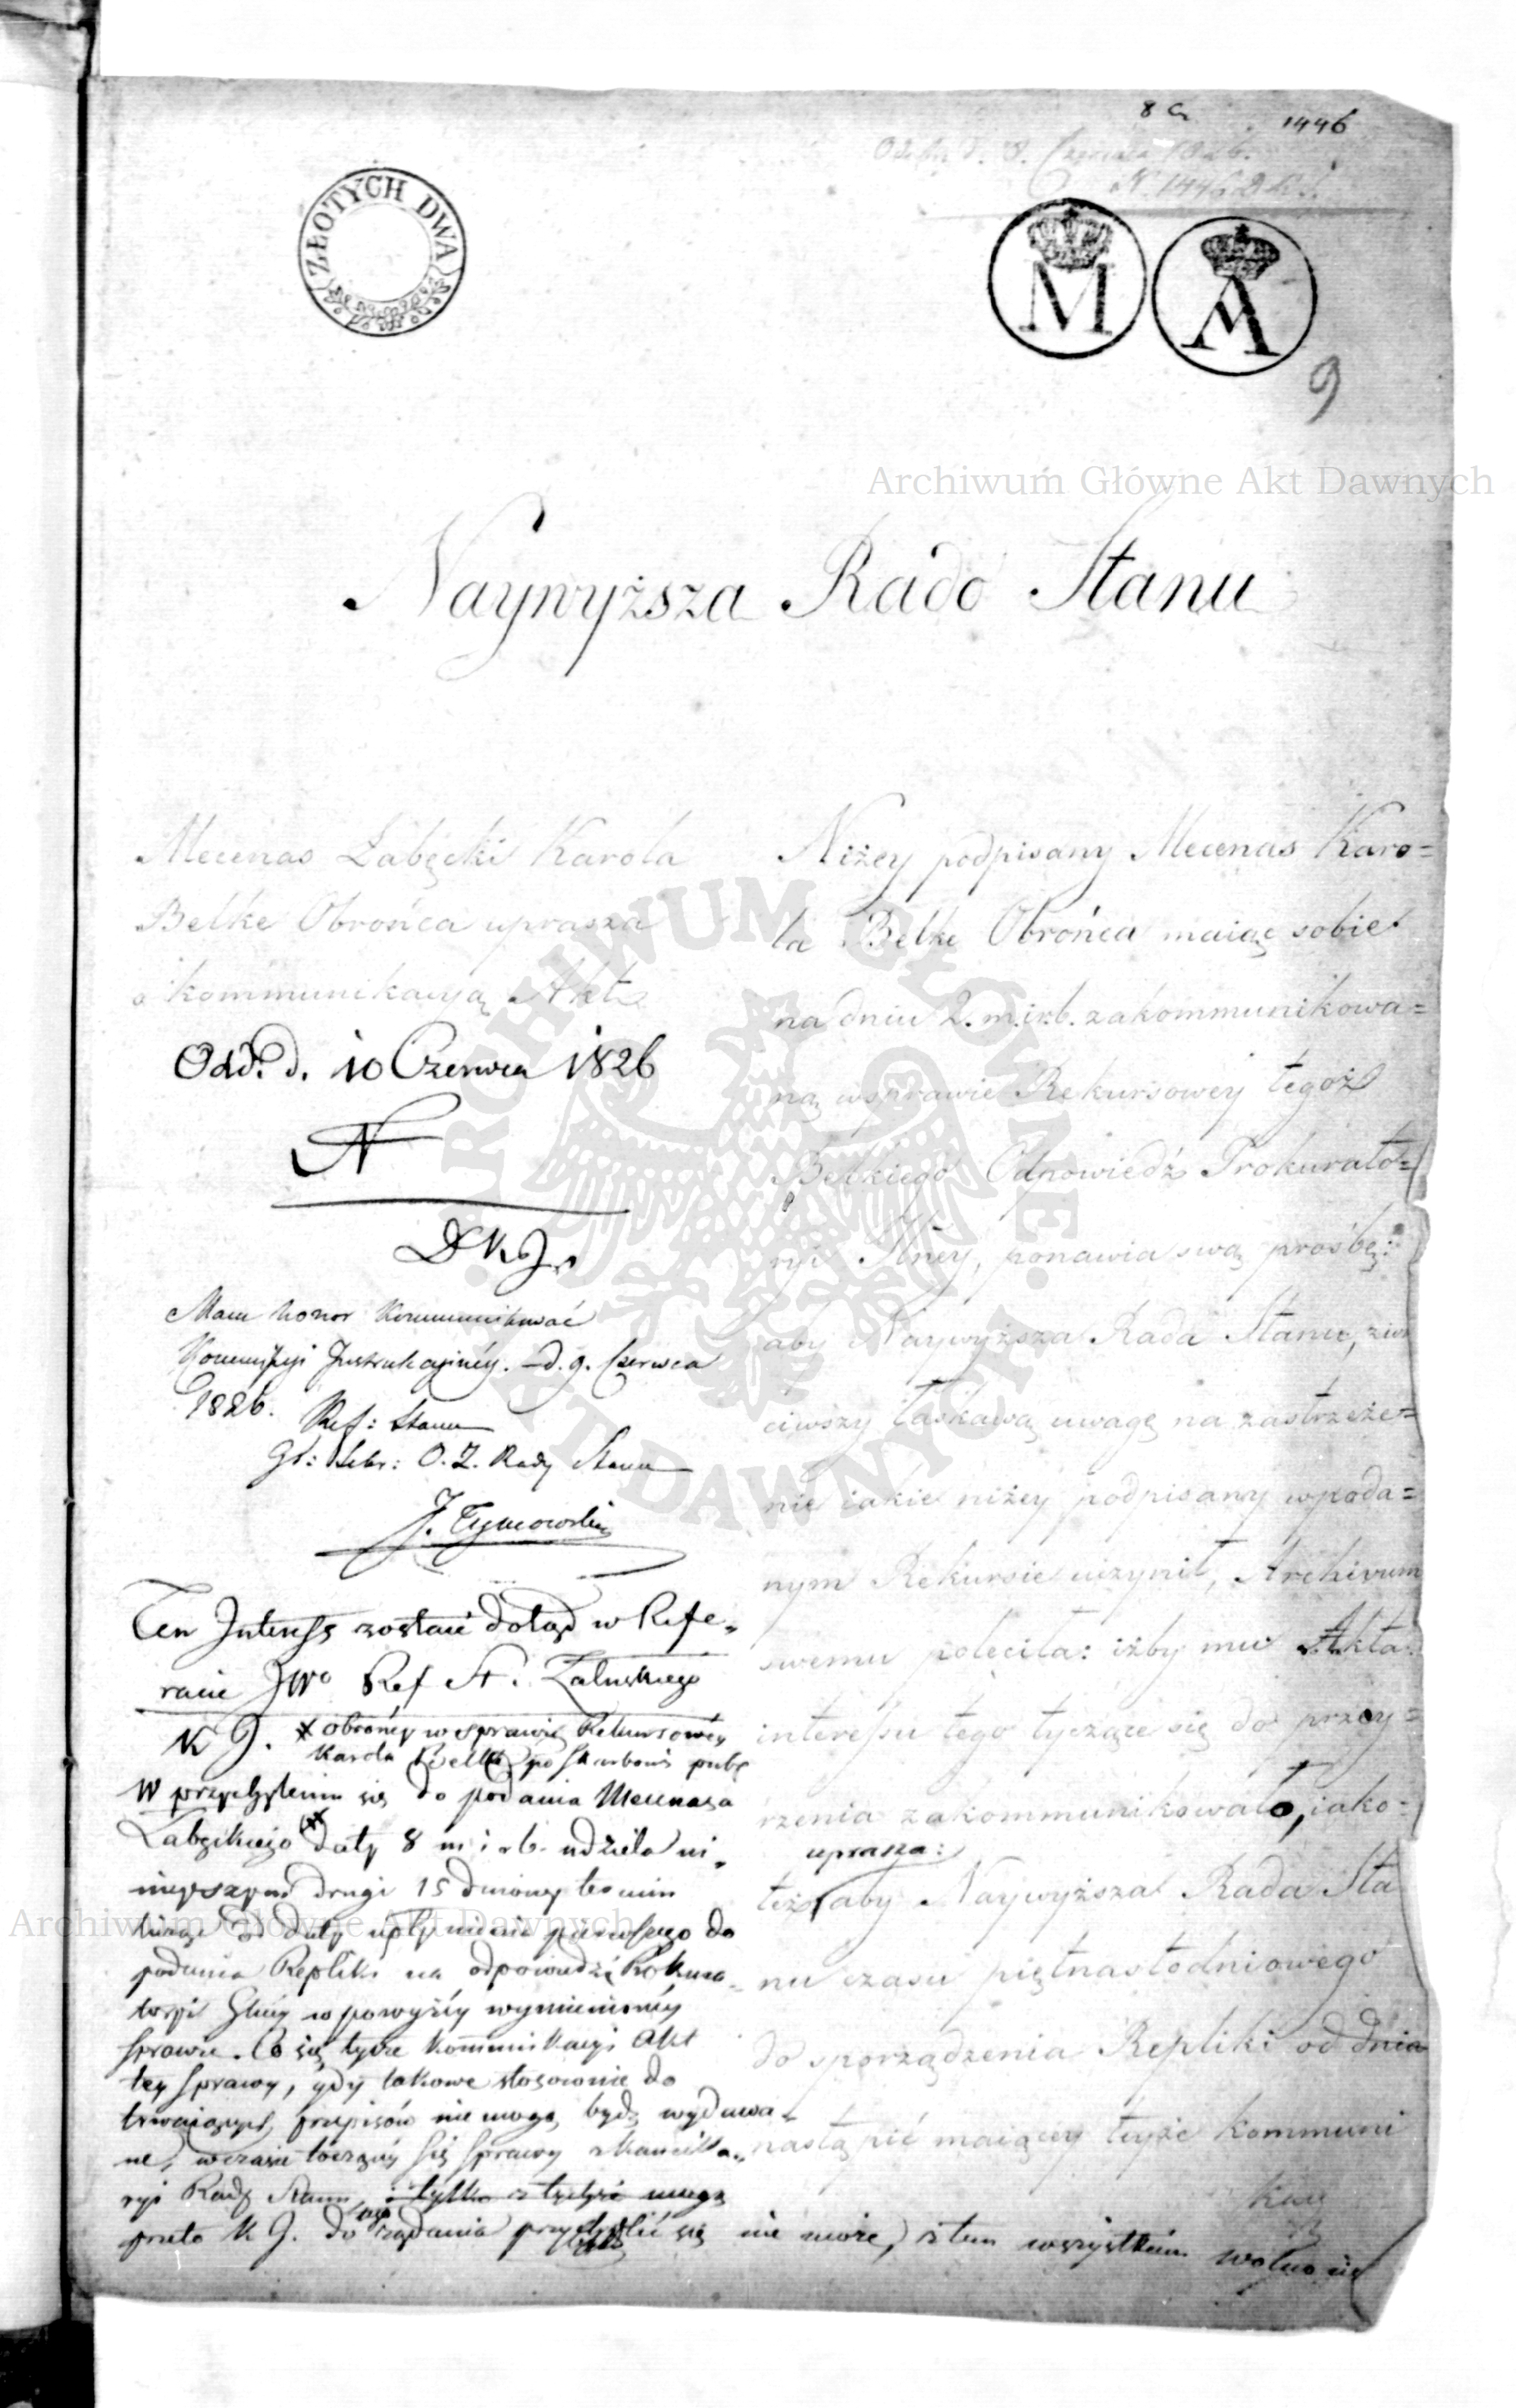 8 Cz 1446
Odebr. d. 8. Czerwca 1826.
N. 1446 D.K.J.
ZŁOTYCH DWA
M
A
9
Archiwum Główne Akt Dawnych
Naywyższa Rado Stanu
Mecenas Łabęcki Karola
Belke Obrońca uprasza
o kommunikacyą Akt
Odd. d. 10 Czerwca 1826
N
DKJ.
Mam honor kommunikować
Kommissyi Instrukcyiney. – d. 9. Czerwca
1826.
Ref: Stanu
Gł: Sekr: O. Z. Rady Stanu
J. Tymowski
Ten Interess zostaie dotąd w Refe-
racie JWo Ref St. Załuskiego
K J. x obrońcy w sprawie Rekursowéy
Karola Belke po skarbowi publ
W przychyleniu się do podania Mecenasa
Łabęckiego x daty 8 m i rb. udziela ni-
nieyszym drugi 15 dniowy termin
licząc od daty upłynienia pierwszego do
podania Repliki na odpowiedź Prokura-
toryi Głney w powyżéy wymienionéy
sprawie. Co się tycze kommunikacyi Akt
tey sprawy, gdy takowe stosownie do
trwaiących przepisów nie mogą bydź wydawa-
ne, w czasie toczącéy się sprawy z kancella-
ryi Rady Stanu i tylko z tychże mogą
przeto K J. do tego żądania przychylić się nie może, z tem wszystkiem wolno iest
Niżey podpisany Mecenas Karo=
la Belke Obrońca maiąc sobie
na dniu 2. m. i r. b. zakommunikowa=
ną w sprawie Rekursowey tegoż
Belkiego Odpowiedź Prokurato=
ryi Głney, ponawia swą prośbę:
aby Naywyższa Rada Stanu, zwró
ciwszy łaskawą uwagę na zastrzeże=
nie iakie niżey podpisany w poda=
nym Rekursie uczynił, Archivum
swemu poleciła: iżby mu Akta
interessu tego tyczące się do przey=
rzenia zakommunikowało, iako=
uprasza:
też aby Naywyższa Rada Sta
nu czasu piętnastodniowego
do sporządzenia Repliki od dnia
nastąpić maiącey teyże kommuni
kacy
Archiwum Główne Akt Dawnych
ARCHIWUM GŁÓWNE AKT DAWNYCH